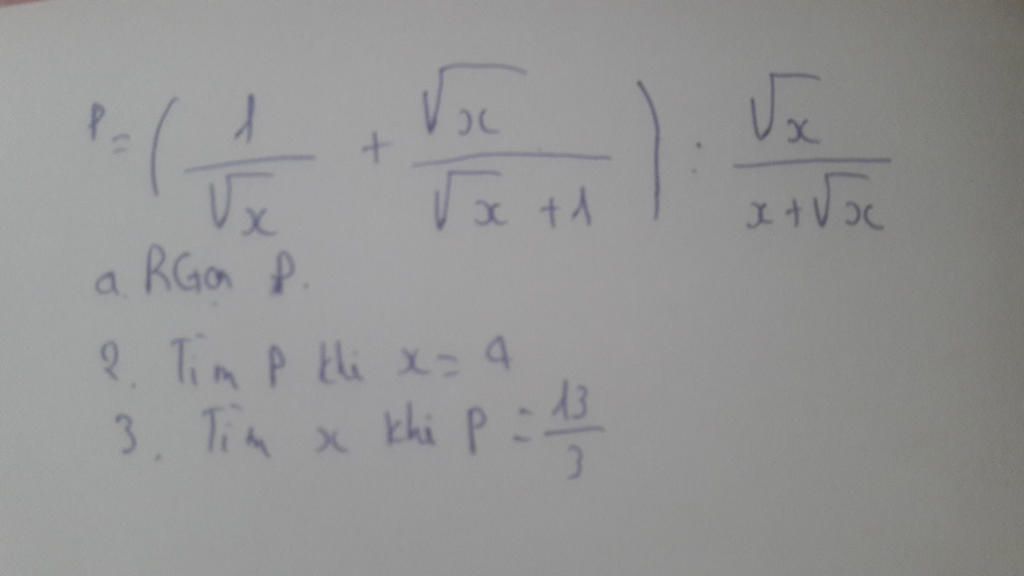 P = ( 1/√x + √x/(√x + 1) ) : √x/(x + √x)
a. RGọn P.
2. Tìm P khi x = 4
3. Tìm x khi P = 13/3